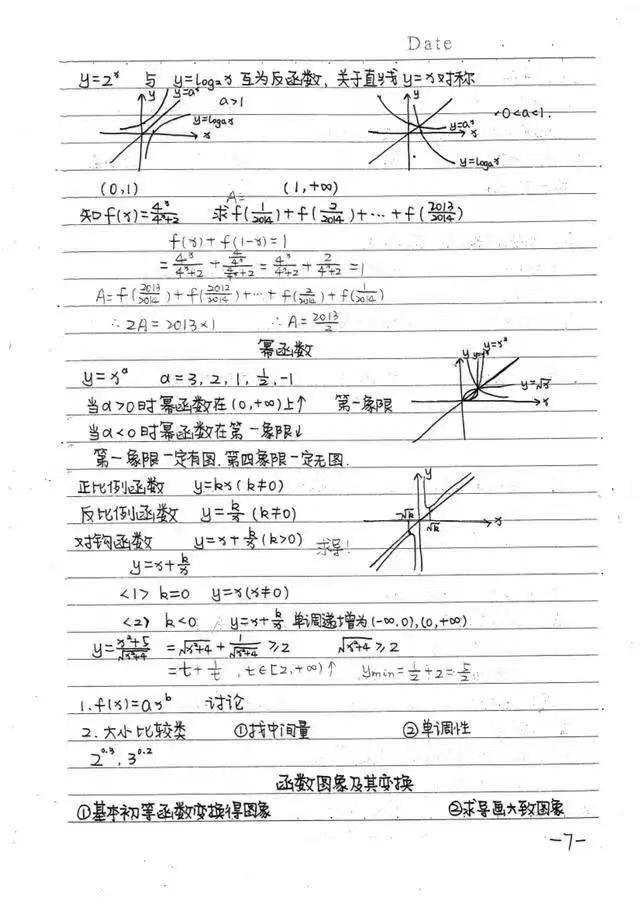 Date
y=2ˣ 与 y=logₐx 互为反函数, 关于直线 y=x 对称
y y=aˣ a>1 y=logₐx x
y 0<a<1. y=aˣ x y=logₐx
(0,1) (1,+∞)
知 f(x)=4ˣ/(4ˣ+2) A= 求 f(1/2014)+f(2/2014)+…+f(2013/2014)
f(x)+f(1-x)=1
=4ˣ/(4ˣ+2)+(4/4ˣ)/(4/4ˣ+2)=4ˣ/(4ˣ+2)+2/(4ˣ+2)=1
A=f(2013/2014)+f(2012/2014)+…+f(2/2014)+f(1/2014)
∴2A=2013×1 ∴A=2013/2
幂函数
y=xᵃ a=3,2,1,1/2,-1
y y=x³ y=√x x
当a>0时幂函数在(0,+∞)上↑ 第一象限
当a<0时幂函数在第一象限↓
第一象限一定有图.第四象限一定无图.
正比例函数 y=kx(k≠0)
反比例函数 y=k/x(k≠0)
对钩函数 y=x+k/x(k>0) 求导!
y -√k √k x
y=x+k/x
<1> k=0 y=x(x≠0)
<2> k<0 y=x+k/x 单调递增为(-∞,0),(0,+∞)
y=(x²+5)/√(x²+4) =√(x²+4)+1/√(x²+4)≥2 √(x²+4)≥2
=t+1/t, t∈[2,+∞)↑ ymin=1/2+2=5/2
1.f(x)=axᵇ 讨论
2.大小比较类 ①找中间量 ②单调性
2^0.3, 3^0.2
函数图象及其变换
①基本初等函数变换得图象 ②求导画大致图象
-7-